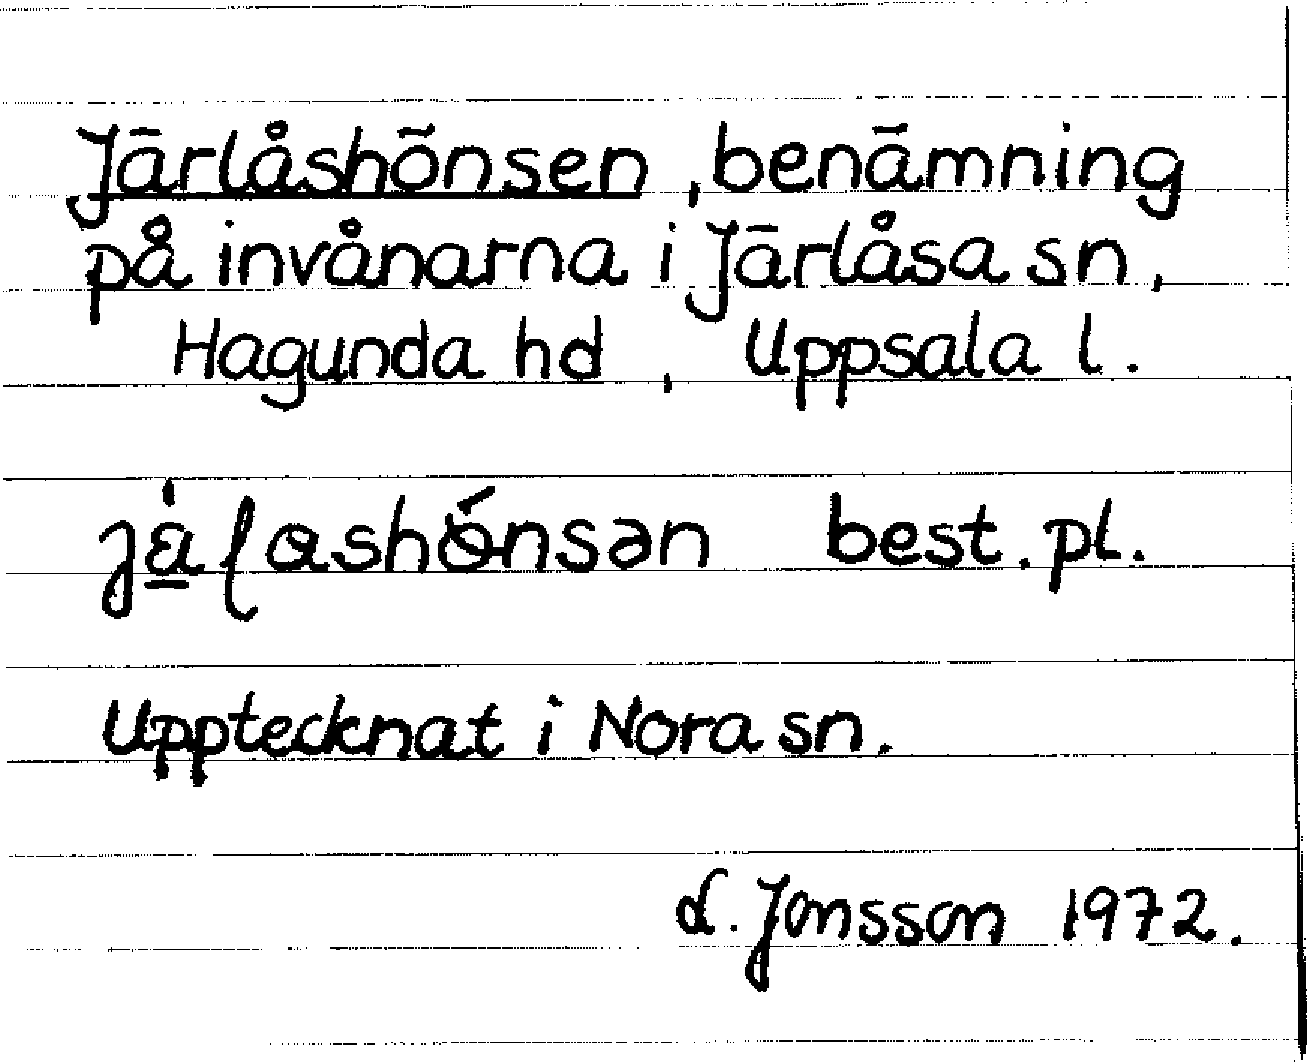 Järlåshönsen, benämning
på invånarna i Järlåsa sn,
Hagunda hd, Uppsala l.
best. pl.
Upptecknat i Nora sn.
L. Jonsson 1972.